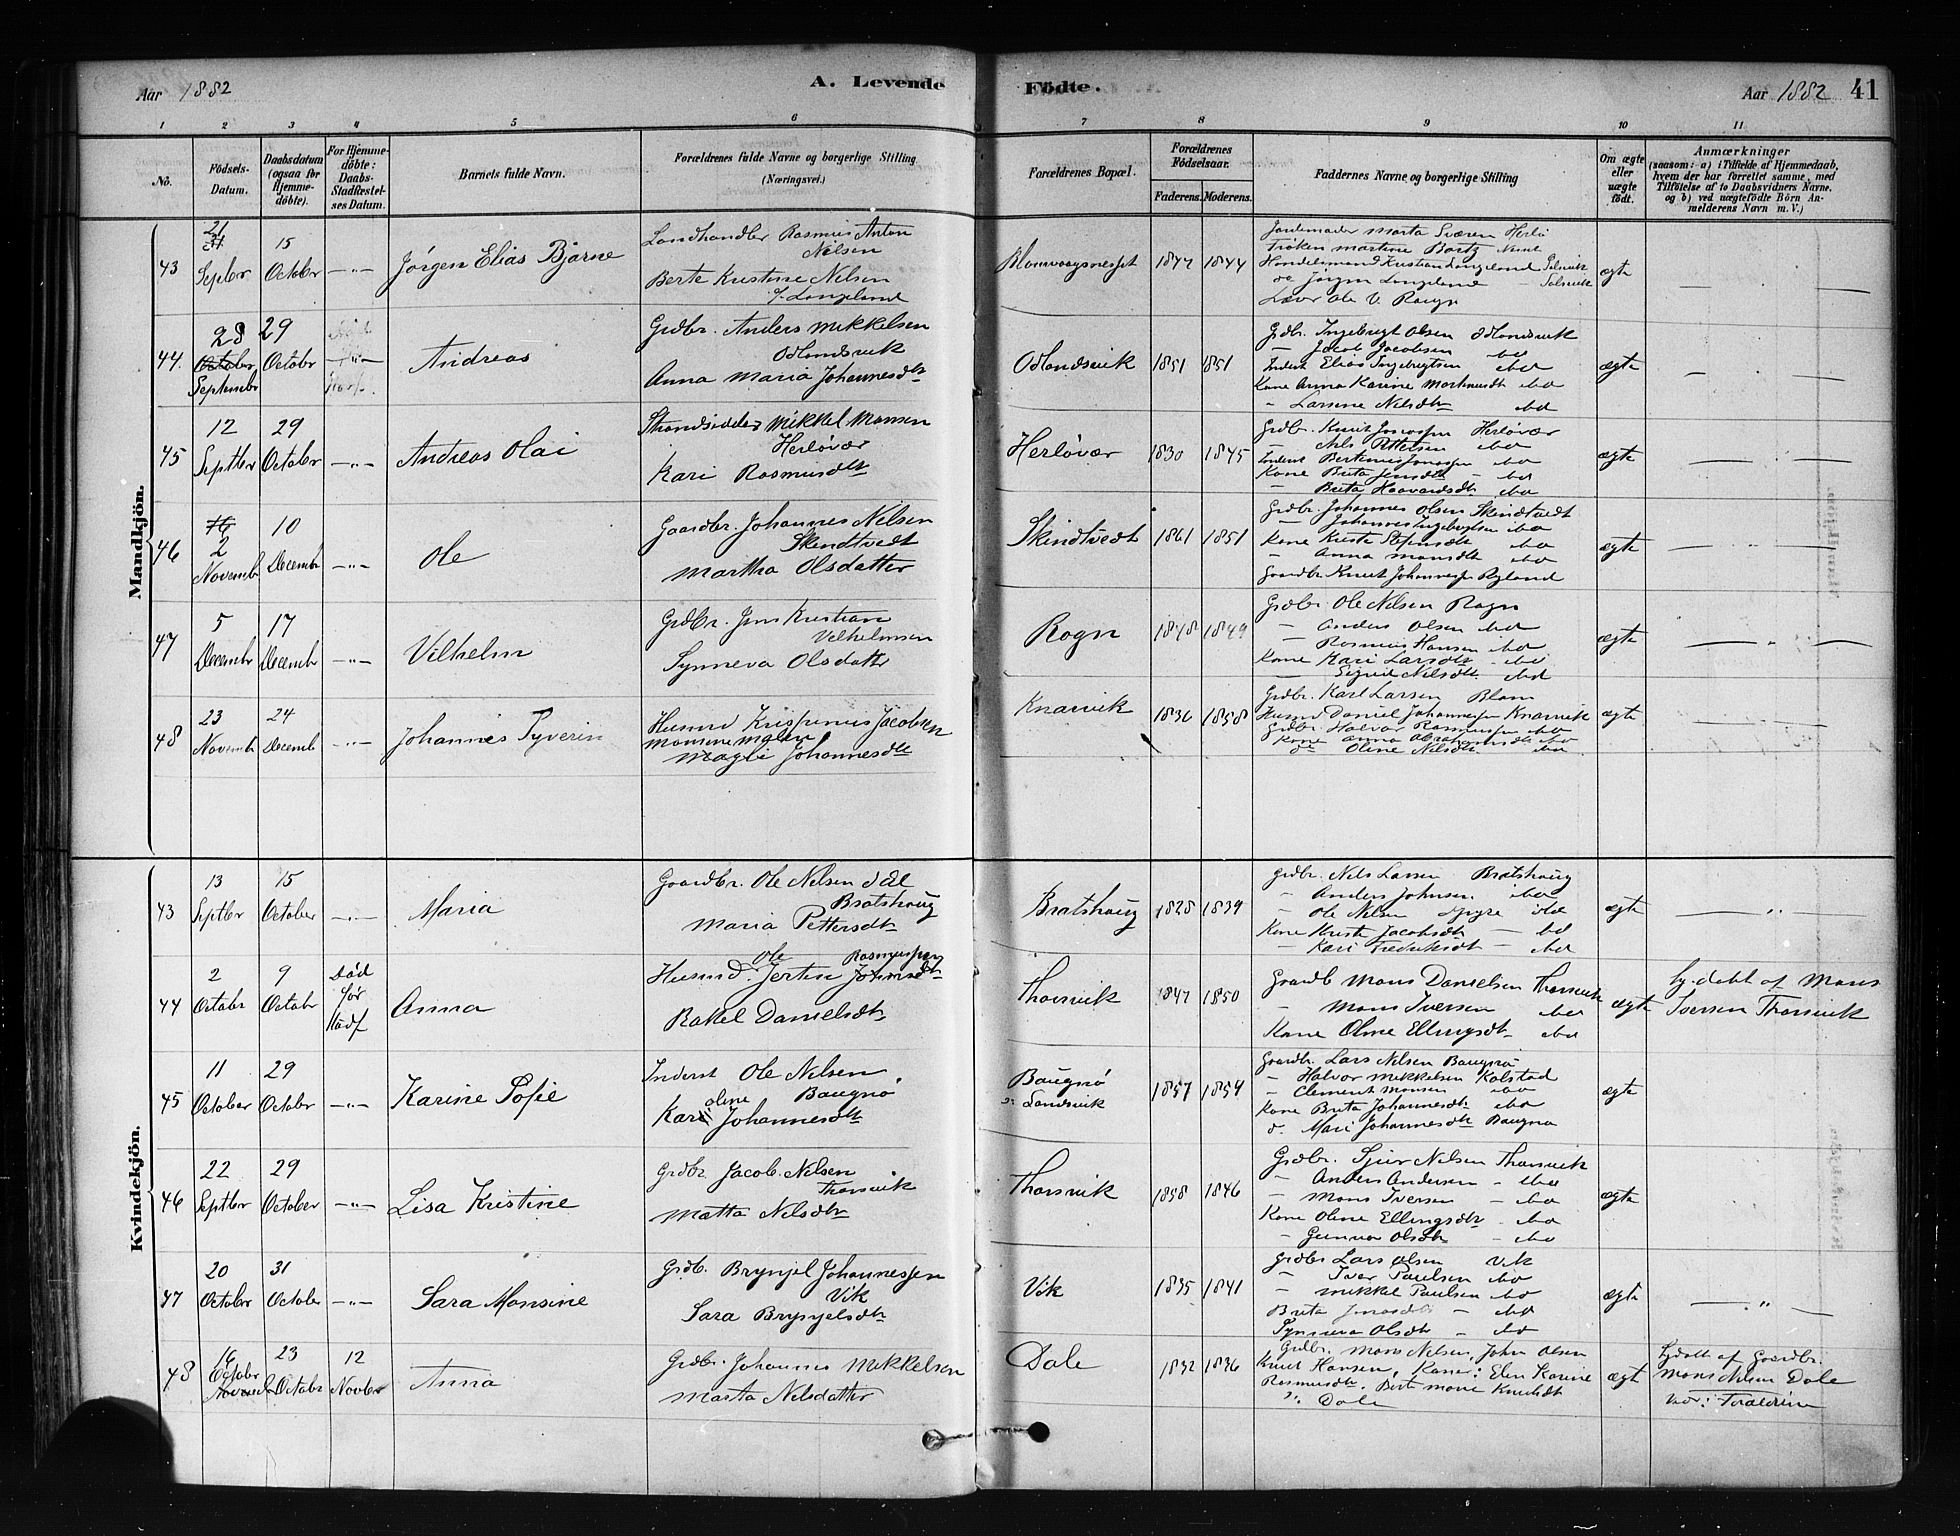 Aar 1882
A. Levende
Födte.
Aar 1882
41
1 2 3 4 5 6 7 8 9 10 11
No.
Födsels-Datum.
Daabsdatum (ogsaa for Hjemme-döbte).
For Hjemme-döbte: Daabs-Stadfæstel-ses Datum.
Barnets fulde Navn.
Forældrenes fulde Navne og borgerlige Stilling. (Næringsvei.)
Forældrenes Bopæl.
Forældrenes Födselsaar.
Faderens. Moderens.
Faddernes Navne og borgerlige Stilling
Om ægte eller uægte födt.
Anmærkninger
(saasom: a) i Tilfælde af Hjemmedaab, hvem der har forrettet samme, med Tilföielse af to Daabsvidners Navne. og b) ved uægtefödte Börn An-melderens Navn m. V.)
Mandkjön.
43
21 Septbr
15 October
Jørgen Elias Bjarne
Landhandler Rasmus Anton Nilsen
Berte Kristine Nilsen f. Langeland
Blomvaagnesset
1844
Jordemoder Marta Sværen Herlø
Frøken Martine
Handelsmand Kristian Langeland Solsvik
Jørgen Langeland - Solsvik
Lærer Ole V. Rogn
ægte
44
28 September
29 October
Andreas
Grdbr. Anders Mikkelsen Odlandsvik
Anna Maria Johannesdtr
Odlandsvik
1851 1851
Grdbr. Ingebrigt Olsen Odlandsvik
- Jacob Jacobsen ibd
Inderst Elias Ingebrigtsen ibd
Kone Anna Karine Martinusdt ibd
- Larsine Nilsdtr ibd
ægte
45
12 Septbr
29 October
Andreas Olai
Strandsidder Mikkel Monsen Herløvær
Kari Rasmusdtr
Herløvær
1830 1845
Grdbr. Knut Jonassen Herløvær
- Nils Pettersen ibd
Inderst Bertinius Jonassen ibd
Kone Brita Jensdtr - ibd
- Brita Haavardsdtr ibd
ægte
46
2 Novembr
10 Decembr
Ole
Gaardbr. Johannes Nilsen Skindtvedt
Martha Olsdatter
Skindtvedt
1861 1851
Grdbr. Johannes Olsen Skindtvedt
- Johannes Ingebrigtsen ibd
Kone Kristi Stefensdtr ibd
- Anna Monsdtr ibd
Gaardbr Knut Johannessen Ryland
ægte
47
5 Decembr
17 Decembr
Vilhelm
Grdbr. Jens Kristian Vilhelmsen
Synneva Olsdatter
Rogn
1848 1849
Grdbr. Ole Nilsen Rogn
- Anders Olsen ibd
- Rasmus Hansen ibd
Kone Kari Larsdtr - ibd
- Sigrid Nilsdtr. ibd
ægte
48
23 Novembr
24 Decembr
Johannes Syverin
Husmd Krispinus Jacobsen
Magli Johannesdtr
Knarvik
1836 1858
Grdbr. Karl Larsen Blom
Husmd Daniel Johannessen Knarvik
Grdbr. Halvor Rasmussen ibd
Kone Anna Abrahamsdtr ibd
do Oline Nilsdtr ibd
ægte
Kvindekjön.
43
13 Septbr
15 October
Maria
Gaardbr. Ole Nilsen Bratshoug
Maria Pettersdtr
Bratshoug
1828 1839
Grdbr. Nils Larsen Bratshoug
- Anders Johnsen ibd
- Ole Nilsen
Kone Kristi Jacobsdtr - ibd
- Kari Fredriksdtr - ibd
ægte
44
2 Octobr
9 Octobr
Død før Stadf
Anna
Husmd. Ole Rasmussen
Rakel Danielsdtr
Thorsvik
1847 1850
Gaardb Mons Danielsen Thorsvik
- Mons Iversen ibd
Kone Oline Ellingsdtr ibd
ægte
hj. døbt af Mons Iversen Thorsvik
45
11 October
29 October
Karine Sofie
Inderst Ole Nilsen Baugnø
Karoline Johannesdtr
Baugnø
Landsvik
1857 1854
Gaardbr. Lars Nilsen Baugnø
- Halvor Mikkelsen Kolstad
- Clement Monsen ibd
Kone Brita Johannesdtr ibd
d. Mari Johannesdtr Baugnø
ægte
46
22 Septbr
29 October
Lisa Kristine
Grdbr Jacob Nilsen Thorsvik
Matta Nilsdtr
Thorsvik
1858 1846
Grdbr. Sjur Nilsen Thorsvik
- Anders Andersen - ibd
- Mons Iversen - ibd
Kone Oline Ellingsdtr. ibd
- Gunnor Olsdtr - ibd
ægte
47
20 October
31 October
Sara Monsine
Grdb. Brynjel Johannessen Vik
Sara Brynjelsdtr
Vik
1835 1841
Grdbr Lars Olsen Vik
- Iver Paulsen ibd
- Mikkel Paulsen ibd
Brita Jonasdtr - ibd
Synneva Olsdtr - ibd
ægte
48
16 October
23 Octobr
12 Novbr
Anna
Grdbr. Johannes Mikkelsen
Marta Nilsdatter
Dale
1832 1836
Grdbr. Mons Nilsen, John Olsen
Knut Hansen, Kone: Elen Karine
Rasmusdtr. Berte Marie Knutsdtr
Dale
ægte
hjdøbt af Gaardbr.
Mons Nilsen Dale
Forældrene